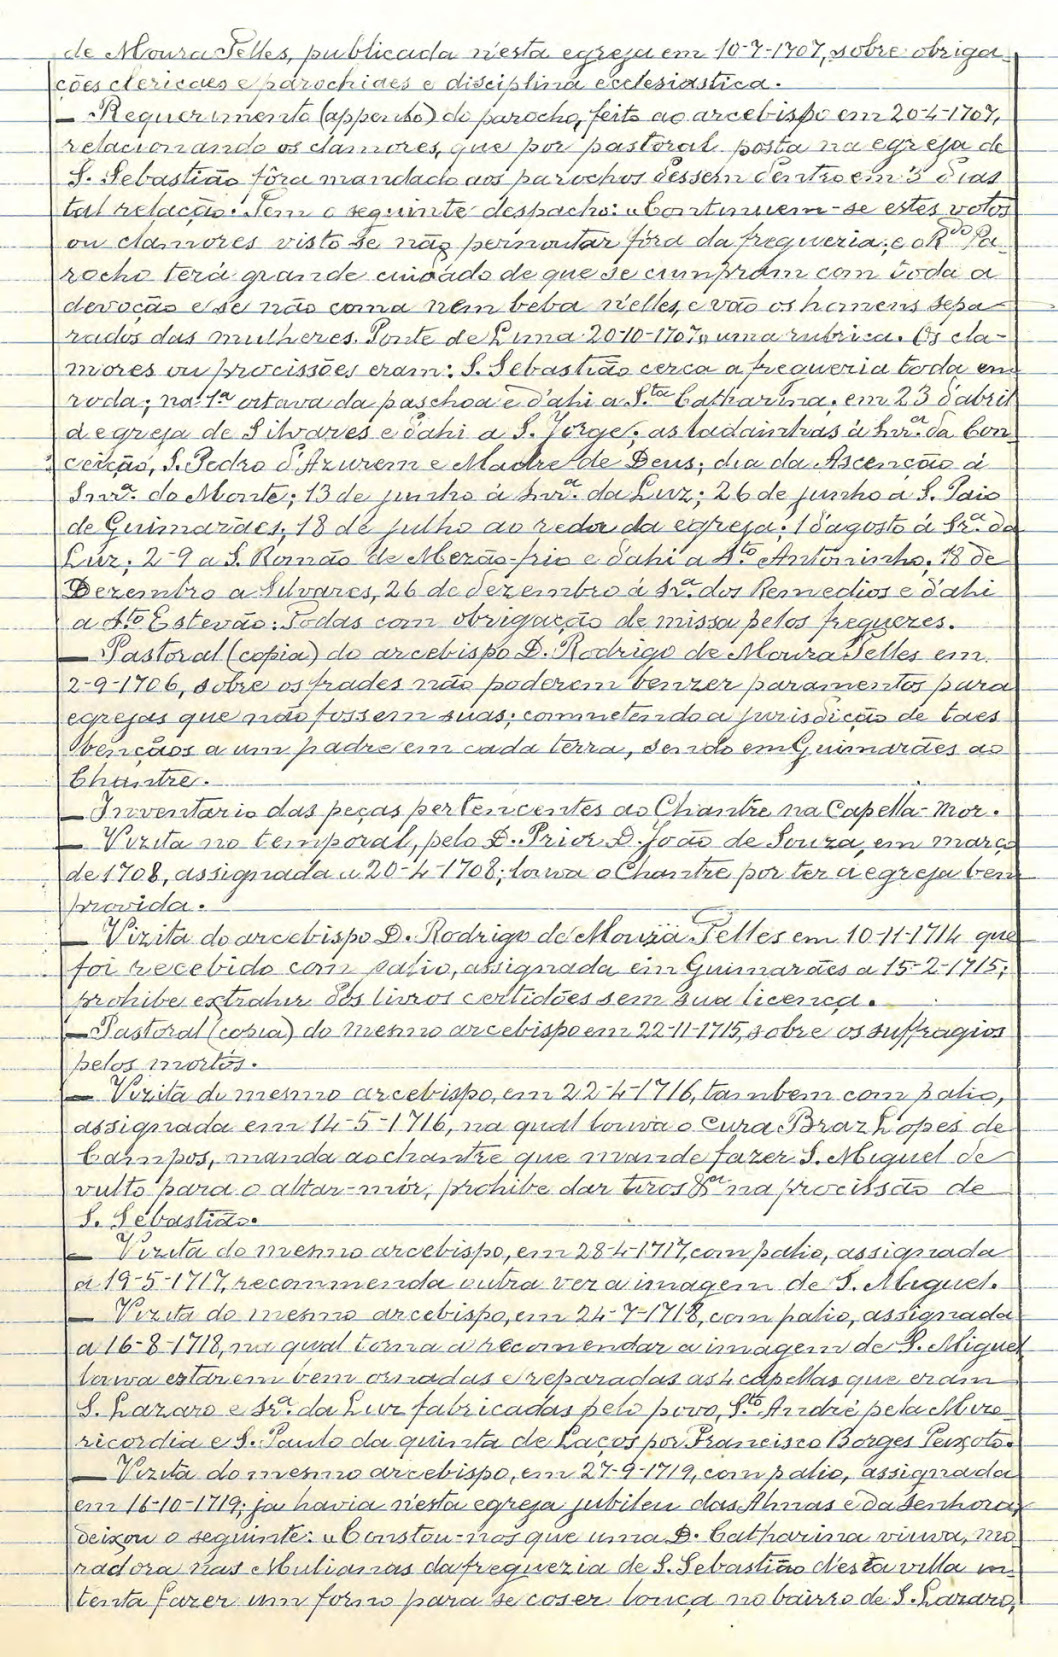 de Moura Telles, publicada n'esta egreja em 10-7-1707, sobre obriga-
ções clericaes e parochiaes e disciplina ecclesiastica.
— Requerimento (appenso) do parocho, feito ao arcebispo em 20-4-1707,
relacionando os clamores, que por pastoral posta na egreja de
S. Sebastião fôra mandado aos parochos dessem dentro em 3 dias
tal relação. Tem o seguinte despacho: «Continuem-se estes votos
ou clamores visto se não pernoutar fóra da freguezia; e o Rdo Pa-
rocho terá grande cuidado de que se cumpram com toda a
devoção e se não coma nem beba n'elles, e vão os homens sepa-
rados das mulheres. Ponte de Lima 20-10-1707» uma rubrica. Os cla-
mores ou procissões eram: S. Sebastião cerca a freguezia toda em
roda; na 1.ª oitava da paschoa e d'ahi a S.ta Catharina; em 23 d'abril
á egreja de Silvares e d'ahi a S. Jorge; as ladainhas á Snr.ª da Con-
ceição, S. Pedro d'Azurem e Madre de Deus; dia da Ascenção á
Snr.ª do Monte; 13 de junho á Snr.ª da Luz; 26 de junho a S. Paio
de Guimarães; 18 de julho ao redor da egreja; 1 d'agosto á Sr.ª da
Luz; 2-9 a S. Romão de Mezão-frio e d'ahi a S.to Antoninho; 18 de
Dezembro a Silvares, 26 de dezembro á Sr.ª dos Remedios e d'ahi
a S.to Estevão: Todas com obrigação de missa pelos freguezes.
— Pastoral (copia) do arcebispo D. Rodrigo de Moura Telles em
2-9-1706, sobre os frades não poderem benzer paramentos para
egrejas que não fossem suas; commetendo a jurisdição de taes
bençãos a um padre em cada terra, sendo em Guimarães ao
Chantre.
— Inventario das peças pertencentes ao Chantre na Capella-Mor.
— Vizita no temporal, pelo D. Prior D. João de Souza, em março
de 1708, assignada a 20-4-1708; louva o Chantre por ter a egreja bem
provida.
— Vizita do arcebispo D. Rodrigo de Moura Telles em 10-11-1714 que
foi recebido com palio, assignada em Guimarães a 15-2-1715;
prohibe extrahir dos livros certidões sem sua licença.
— Pastoral (copia) do mesmo arcebispo em 22-11-1715, sobre os suffragios
pelos mortos.
— Vizita do mesmo arcebispo, em 22-4-1716, tambem com palio,
assignada em 14-5-1716, na qual louva o cura Braz Lopes de
Campos, manda ao chantre que mande fazer S. Miguel de
vulto para o altar-mór, prohibe dar tiros &ª na procissão de
S. Sebastião.
— Vizita do mesmo arcebispo, em 28-4-1717, com palio, assignada
a 19-5-1717, recommenda outra vez a imagem de S. Miguel.
— Vizita do mesmo arcebispo, em 24-7-1718, com palio, assignada
a 16-8-1718, na qual torna a recomendar a imagem de S. Miguel
louva estarem bem ornadas e reparadas as 4 capellas que eram
S. Lazaro e Sr.ª da Luz fabricadas pelo povo, S.to André pela Mize-
ricordia e S. Paulo da quinta de Laços por Francisco Borges Peixoto.
— Vizita do mesmo arcebispo, em 27-9-1719, com palio, assignada
em 16-10-1719; ja havia n'esta egreja jubileu das Almas e da Senhora,
deixou o seguinte: «Constou-nos que uma D. Catharina viuva, mo-
radora nas Mulianas da freguezia de S. Sebastião d'esta villa in-
tenta fazer um forno para se coser louça no bairro de S. Lazaro,